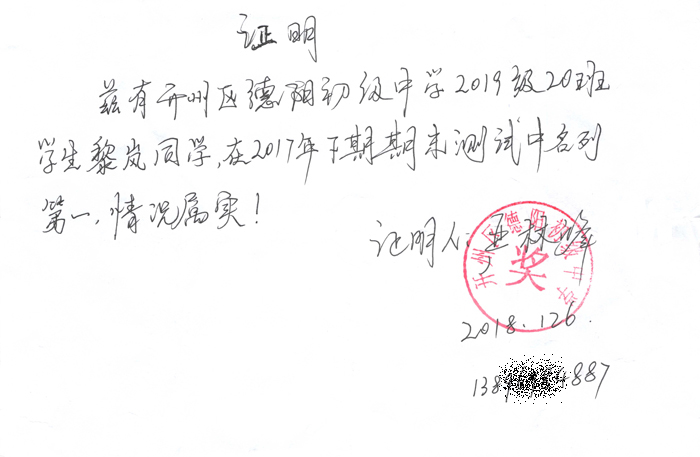 证明
兹有开州区德阳初级中学2019级20班
学生黎岚同学,在2017年下期期末测试中名列
第一,情况属实!
证明人:
开州区德阳初级中学
奖
2018.126.
138 4887